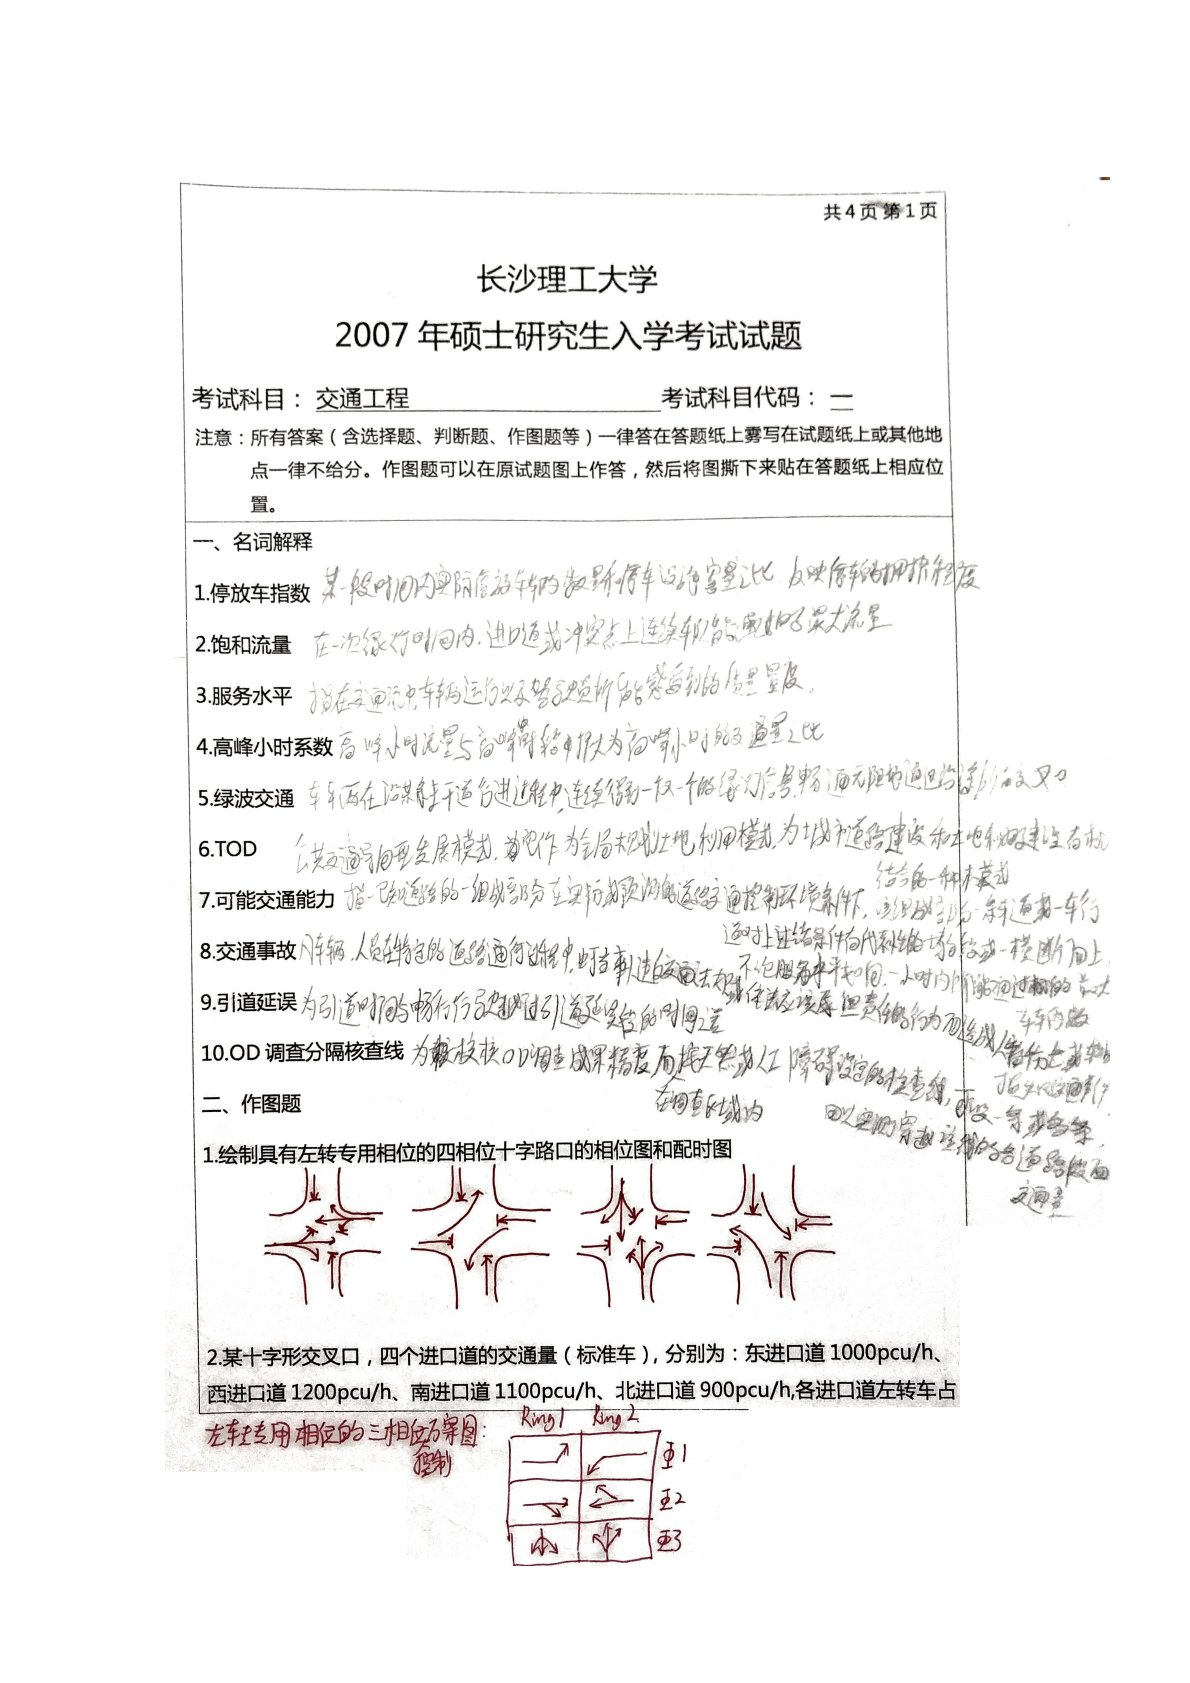 共4页 第1页
长沙理工大学
2007 年硕士研究生入学考试试题
考试科目： 交通工程 考试科目代码： 一
注意：所有答案（含选择题、判断题、作图题等）一律答在答题纸上雾写在试题纸上或其他地
点一律不给分。作图题可以在原试题图上作答，然后将图撕下来贴在答题纸上相应位
置。
一、名词解释
1.停放车指数 某一段时间内实际停放车的数量和停车设施容量之比 反映停车的拥挤程度
2.饱和流量 在一次绿灯时间内，进口道上连续车队 最大流量
3.服务水平 指在交通流中车辆运行以及驾驶员所 感受到的质量量度。
4.高峰小时系数 高峰小时流量与高峰 为高峰小时的 通量之比
5.绿波交通 车辆在沿某条主干道行进过程中，连续得到一个又一个的绿灯信号，畅通无阻地通过沿途所有交叉口
6.TOD 公共交通导向型发展模式，为城市道路建设和土地利用建设有机
结合的一种模式
7.可能交通能力 指一已知道路的一组成部分在实际或预测的道路交通控制环境条件下，该组成部分一条车道或一车行
道对上述诸条件有代表性的均匀段或一横断面上，
8.交通事故 凡车辆、人员在特定的道路通行过程中，由于当事人违反交通法规
不论服务水平如何，一小时内所能通过的最大
车辆数
9.引道延误 为引道时间与畅行行驶 引道延误 的时间之差
10.OD 调查分隔核查线 为校核OD调查成果精度而按天然或人工障碍设定的检查线，可设一条或多条，
在调查区域内
用以实测穿越该线的各道路断面
交通量
二、作图题
1.绘制具有左转专用相位的四相位十字路口的相位图和配时图
2.某十字形交叉口，四个进口道的交通量（标准车），分别为：东进口道 1000pcu/h、
西进口道 1200pcu/h、南进口道 1100pcu/h、北进口道 900pcu/h,各进口道左转车占
左转专用相位的三相位方案图：
控制
Ring 1 Ring 2
φ1
φ2
φ3